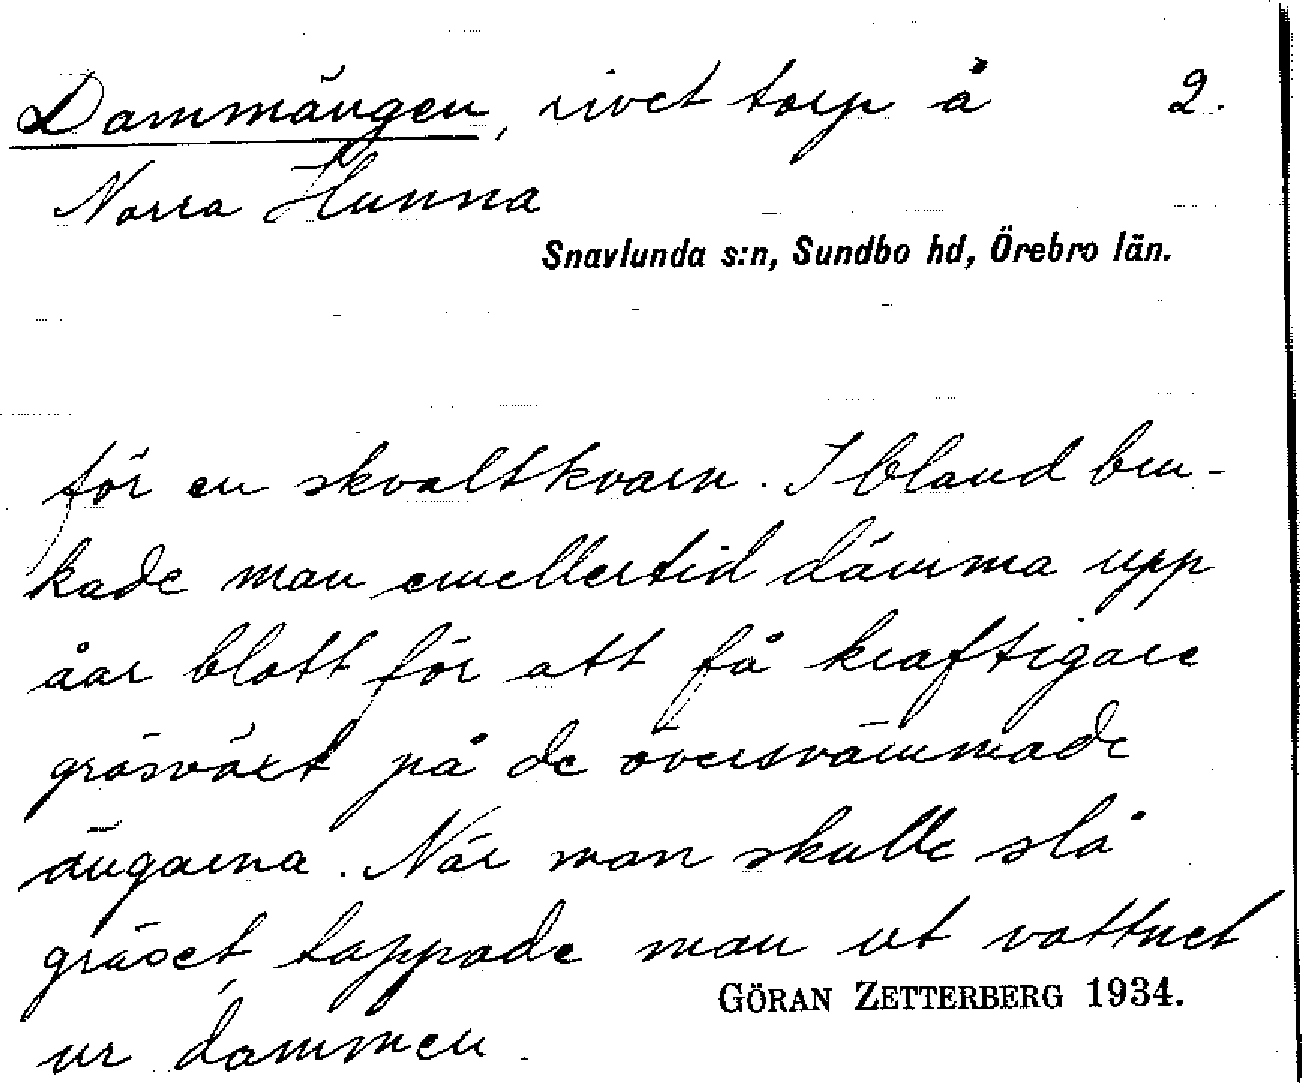 Dammängen, rivet torp å 2.
Norra Hunna
Snavlunda s:n, Sundbo hd, Örebro län.
för en skvaltkvarn. Ibland bru-
kade man emellertid dämma upp
åar blott för att få kraftigare
gräsväxt på de översvämmade
ängarna. När man skulle slå
gräset, tappade man ut vattnet
GÖRAN ZETTERBERG 1934.
ur dammen.